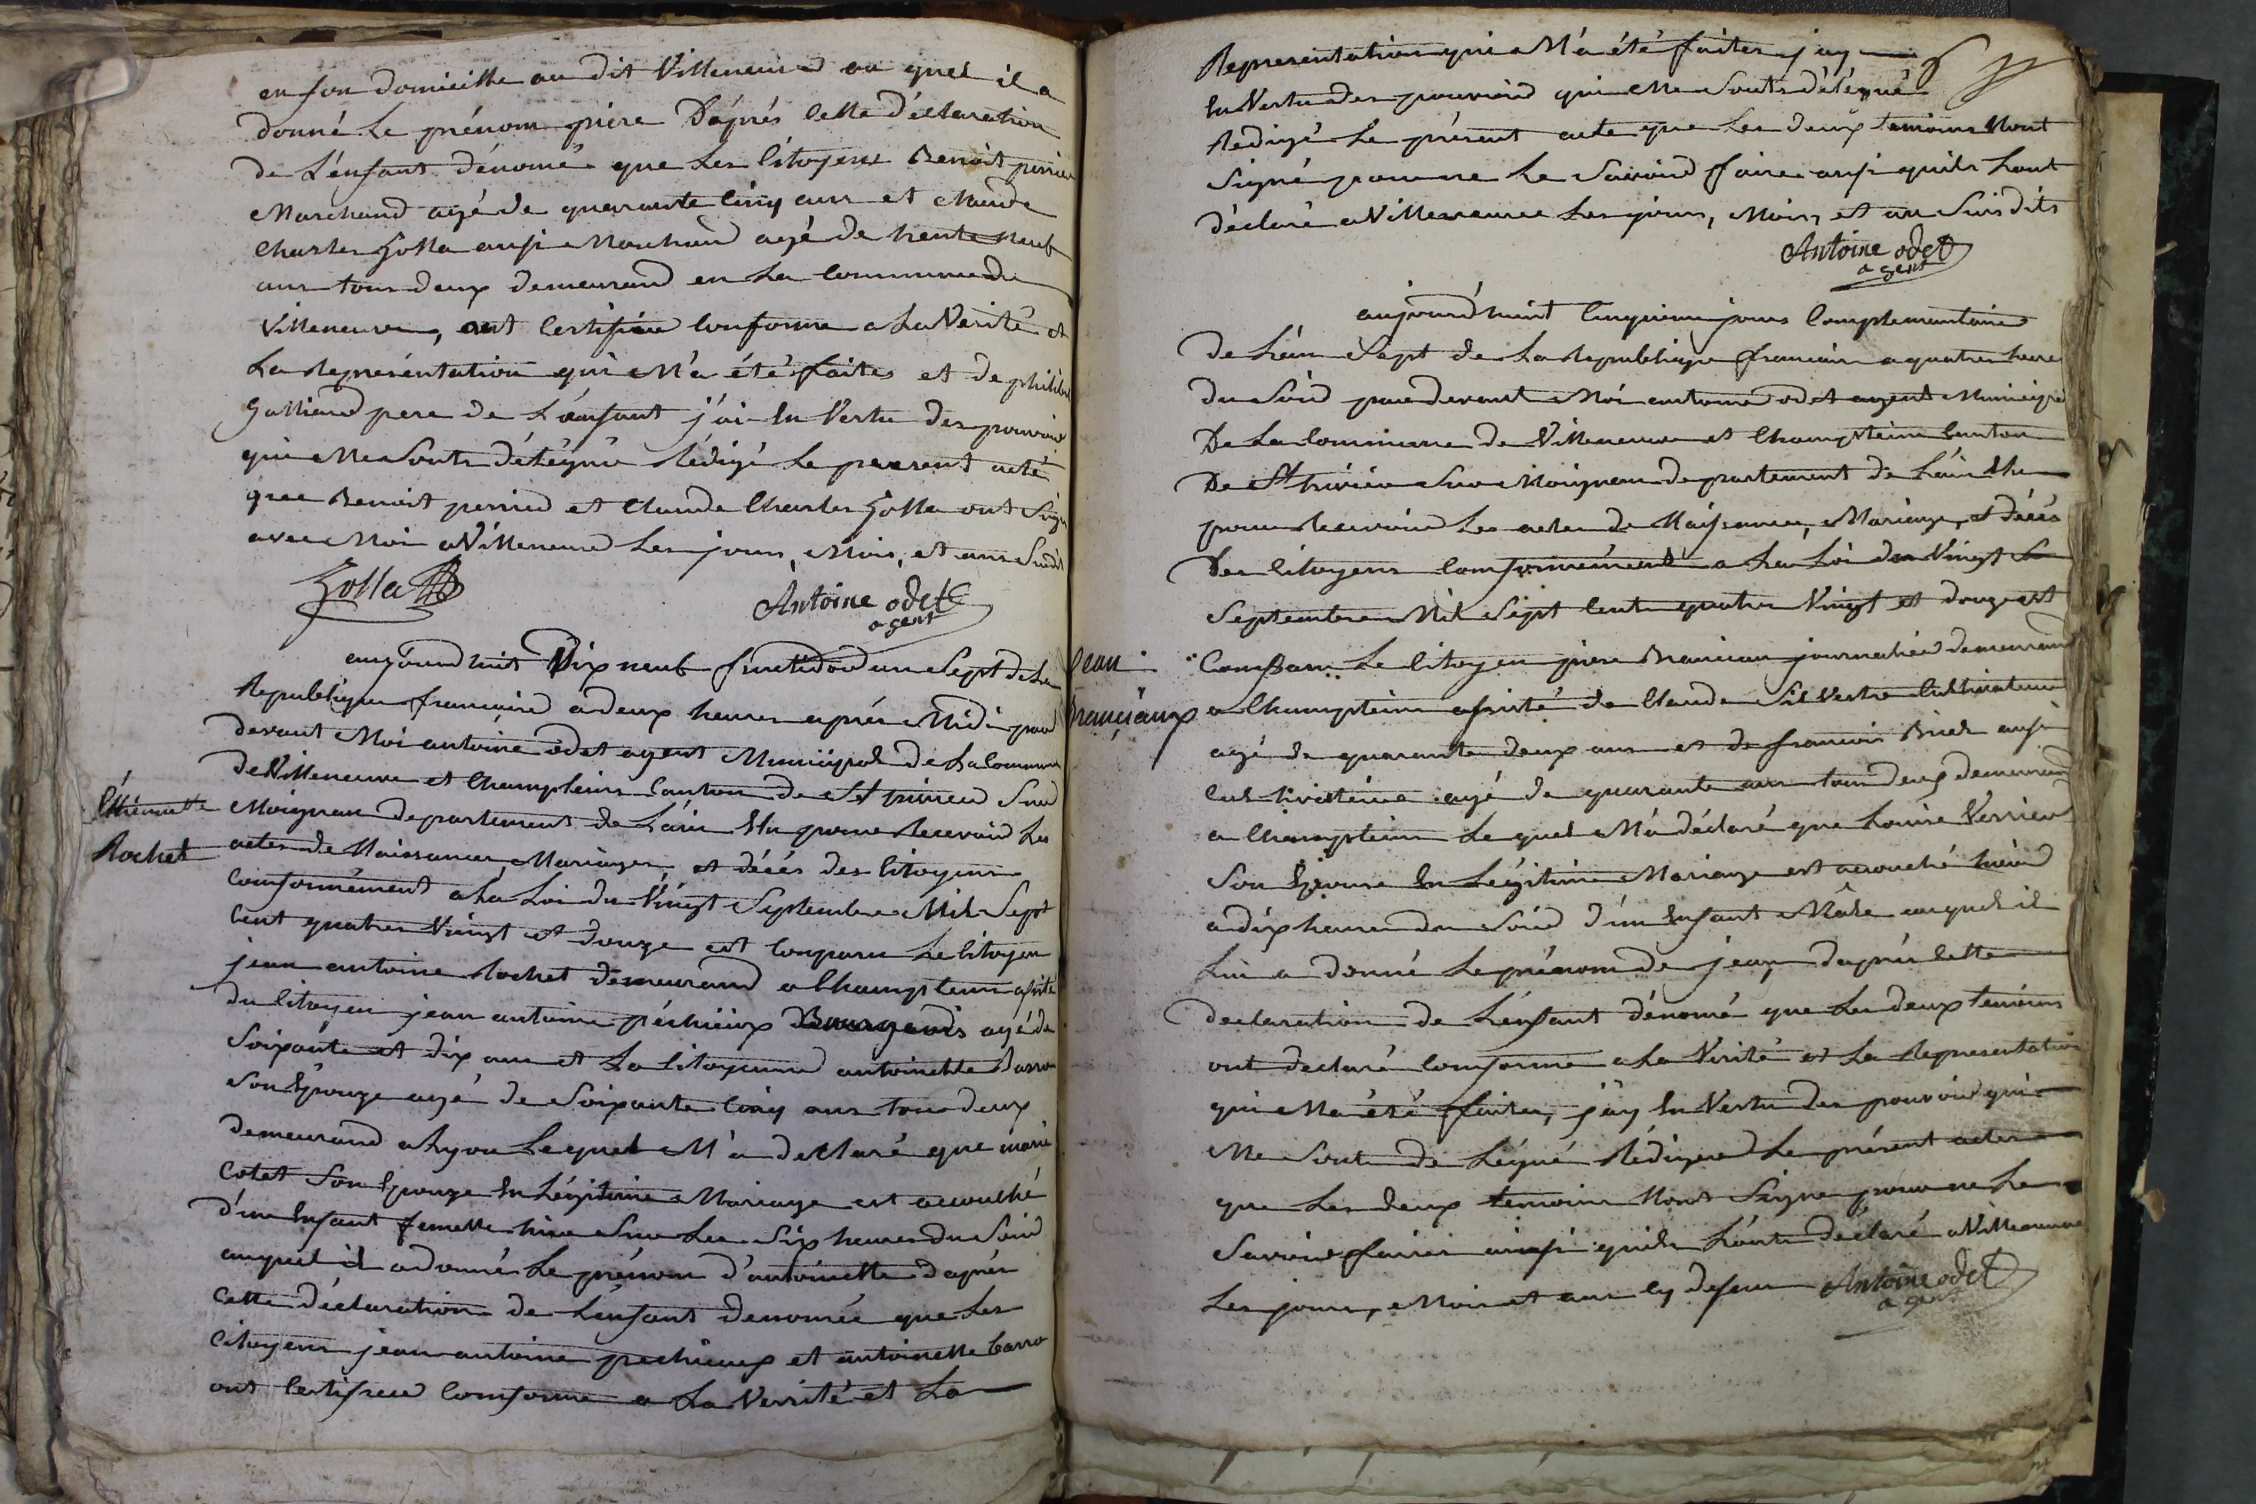 en son domicille au dit Villeneuve au quel il a
donné le prénom piere D'áprés cette d'éclaration
de L'énfant dénomé que Les Citoyens Benoit perrier
Marchand agé de quarante Cinq ans et Claude
Charles Zolla ausi Marchand agé de trente neuf
ans tous deux demeurand en La Commune de
Villeneuve, ont Certifiée Conforme a La Vérité et
La Représentation qui M'a été faites et de philibert
Galliand pere de L'énfant j'ai En Vertu des pouvoir
qui Me Sonts délégué Rédigé Le present acté
que Benoit perrier et Claude Charles Zolla ont Signé
avec Moi a Villeneuve Les jours, Mois, et ans Sudit
Zolla
Antoine odet
agent
aujourd'huit Dix neuf fructidor an Sept de La
Republique francaise a deux heures aprés Midi par
devant Moi antoine odet agent Municipal de La Commune
de Villeneuve et Champtein Canton de St trivier Sur
Moignan departement de L'ain Elu pour Recevoir Les
actes de Naissances, Mariages, et décés des Citoyens
Conformément a La Loi du Vingt Septembre Mil Sept
Cent quatre Vingt et douze est Comparu Le Citoyen
jean antoine Rochet demeurand a Champtein asisté
du Citoyen jean antoine péchieux Bourgeois agé de
Soixante et dix ans et La Citoyenne antoinette Barro
Son Epouze agé de Soixante Cinq ans tous deux
demeurand a Lyon Le quel M'a déclaré que marie
Cotet Son Epouze En Légitime Mariage est accouché
d'un Enfant femelle hier Sur Les Six heures du Soir
auquel il a donné Le prénom d'antoinette d'aprés
Cette déclaration de L'énfant denomée que Les
Citoyens jean antoine pechieux et antoinette barro
ont Certifiee Comforme a La Verrité et La
Rochet
Representation qui M'a été faites j'ay
En Vertu des pouvoirs qui Me Sonts délégué
Redigé Le présent acte que Les deux temoins Nont
Signé pour ne Le Savoir faire ausi quils Lont
déclaré a Villeneuve Les jours, Mois, et an Susdits
Antoine odet
agent
aujourd'huit Cinquieme jours Complementaire
de L'án Sept de La Republique francaise a quatre heure
du Soir par devant Moi antoine odet agent Municipal
De La Commune de Villeneuve et Champtein Canton
De St trivier Sur Moignan departement de L'ain Elu
pour Recevoir Les actes de Naissances, Mariages, et décés
Des Citoyens Conformément a La Loi du Vingt
Septembre Mil Sept Cent quatre Vingt et douze est
Comparu Le Citoyen piere Branciau journalié demeurand
a Champtein asisté de Claude Silvestre Cultivateur
agé de quarante deux ans et de francois Briel ausi
Cultivateur agé de quarante ans tous deux demeurand
a Champtein Le quel M'a déclaré que Louise Verrier
Son Epouse En Légitime Mariage est accouché hierd
a dix heures du Soird d'un Enfant Mâle auquel il
Lui a donné Le prénom de jean daprés Cette
declaration de L'enfant dénomé que Les deux temoins
ont declaré Comforme a La Vérité et La Representation
qui Ma été faites, j'ay En Vertu des pouvoir qui
Me Sont de Légué Rédigé Le présent actes
que Les deux temoins Nont Signé pour ne Le
Savoir faires ainsi quils L'ónt déclaré a Villeneuve
Les jours, Mois et ans Cy desus Antoine odet
agent
Jean
Branciaux